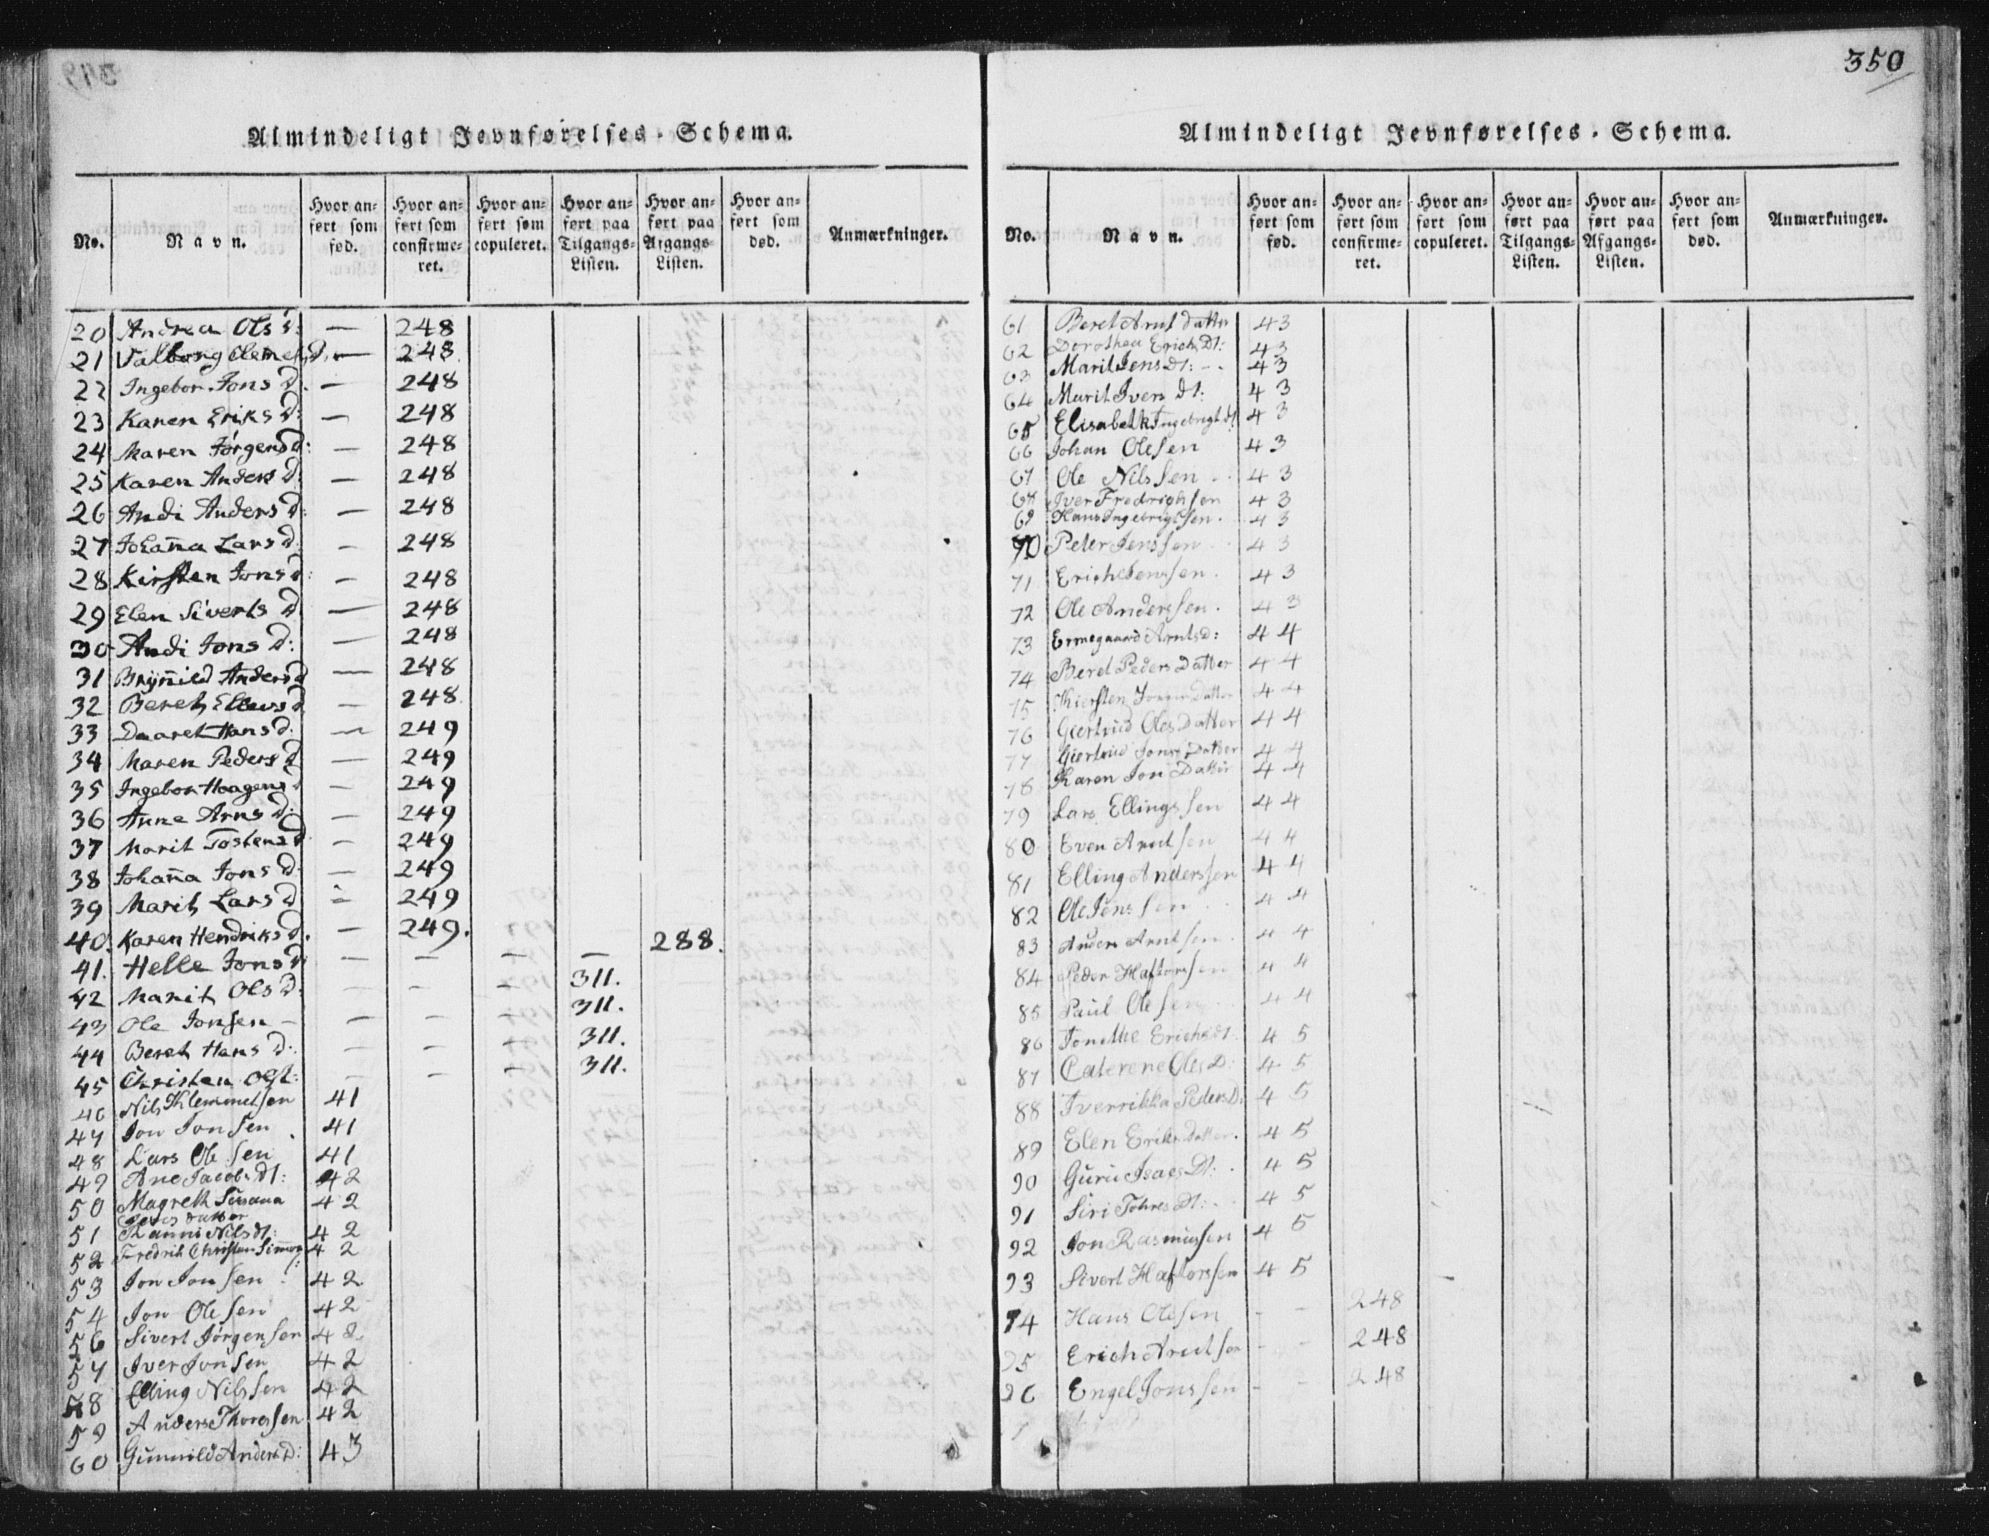 350
Almindeligt Jevnførelses-Schema.
No. Navn. Hvor anført som fød. Hvor anført som confirmeret. Hvor anført som copuleret. Hvor anført paa Tilgangs-Listen. Hvor anført paa Afgangs-Listen. Hvor anført som død. Anmærkninger.
20 Andrea Ols d: — 248
21 Valborg Clemets D. — 248
22 Ingebor Jons d. — 248
23 Karen Eriks d: — 248
24 Maren Jørgens d: — 248
25 Karen Anders d: — 248
26 Andi Anders d: — 248
27 Johan̄a Lars d. — 248
28 Kirsten Jons d: — 248
29 Elen Siverts d — 248
30 Andi Jons D: — 248
31 Bryn̄ild Anders d — 248
32 Beret Ellevs d — 248
33 Daaret Hans d: — 249
34 Maren Peders d — 249
35 Ingebor Haagens d — 249
36 Anne Arns d: — 249
37 Marit Tostens d — 249
38 Johan̄a Jons d — 249
39 Marit Lars d — 249
40. Karen Hendriks d. — 249. — — 288.
41. Helle Jons d — — — 311.
42 Marit Ols d: — — — 311.
43 Ole Jonsen — — — — 311.
44 Beret Hans D: — — — 311.
45 Christen Olst: — —
46 Nils Klemmetsen 41
47 Jon Jonsen 41
48 Lars Olesen 41
49 Ane Jacobs Dt: 42
50 Magreth Susana 42
Peders datter
51 Kanni Nils dt: 42
52 Fredrik Christian Simon 42
53 Jon Jonsen 42
54 Jon Olesen 42
56 Sivert Jörgensen 42
57 Iver Jonsen 42
58 Elling Nilssen 42
59 Anders Thoressen 42
60 Gunnild Anders D: 43
Almindeligt Jevnførelses-Schema.
No. Navn. Hvor anført som fød. Hvor anført som confirmeret. Hvor anført som copuleret. Hvor anført paa Tilgangs-Listen. Hvor anført paa Afgangs-Listen. Hvor anført som død. Anmærkninger.
61 Beret Arnt datter 43
62 Dorothea Erich Dt: 43
63 Marit Jens Dt: - . 43
64 Marit Ivers Dt: 43
65 Elisabeth Ingebrigt dt 43
66 Johan Olesen 43
67 Ole Nilssen 43
68 Iver Fredrichsen 43
69 Hans Ingebrigtsen. 43
70 Peter Jenssen 43
71 Erich Jenssen. 43
72 Ole Anderssen. 43
73 Ermegaard Arnts d: 44
74 Beret Peders Datter 44
75 Kiersten Jonses Datter 44
76 Giertrud Oles Datter 44
77 Giertrud Jonse Datter 44
78 Karen Jon Datter 44
79 Lars Ellingssen 44
80 Even Arntsen 44
81 Elling Anderssen 44
82 Ole Jenssen 44
83 Anders Arntsen. 44
84 Peder Haftorsen 44
85 Paul Olesen 44
86 Jonette Erichs dt. 45
87 Caterene Oles D: 45
88 Iverrikka Peders D: 45
89 Elen Eriks datter. 45
90 Guru Isacs Dt: . 45
91 Siri Tohres Dt: 45
92 Jon Rasmussen 45
93 Sivert Haftorssen 45
94 Hans Olesen - - 248
95 Erich Arntsen - - 248
96 Engel Jonssen - - 248